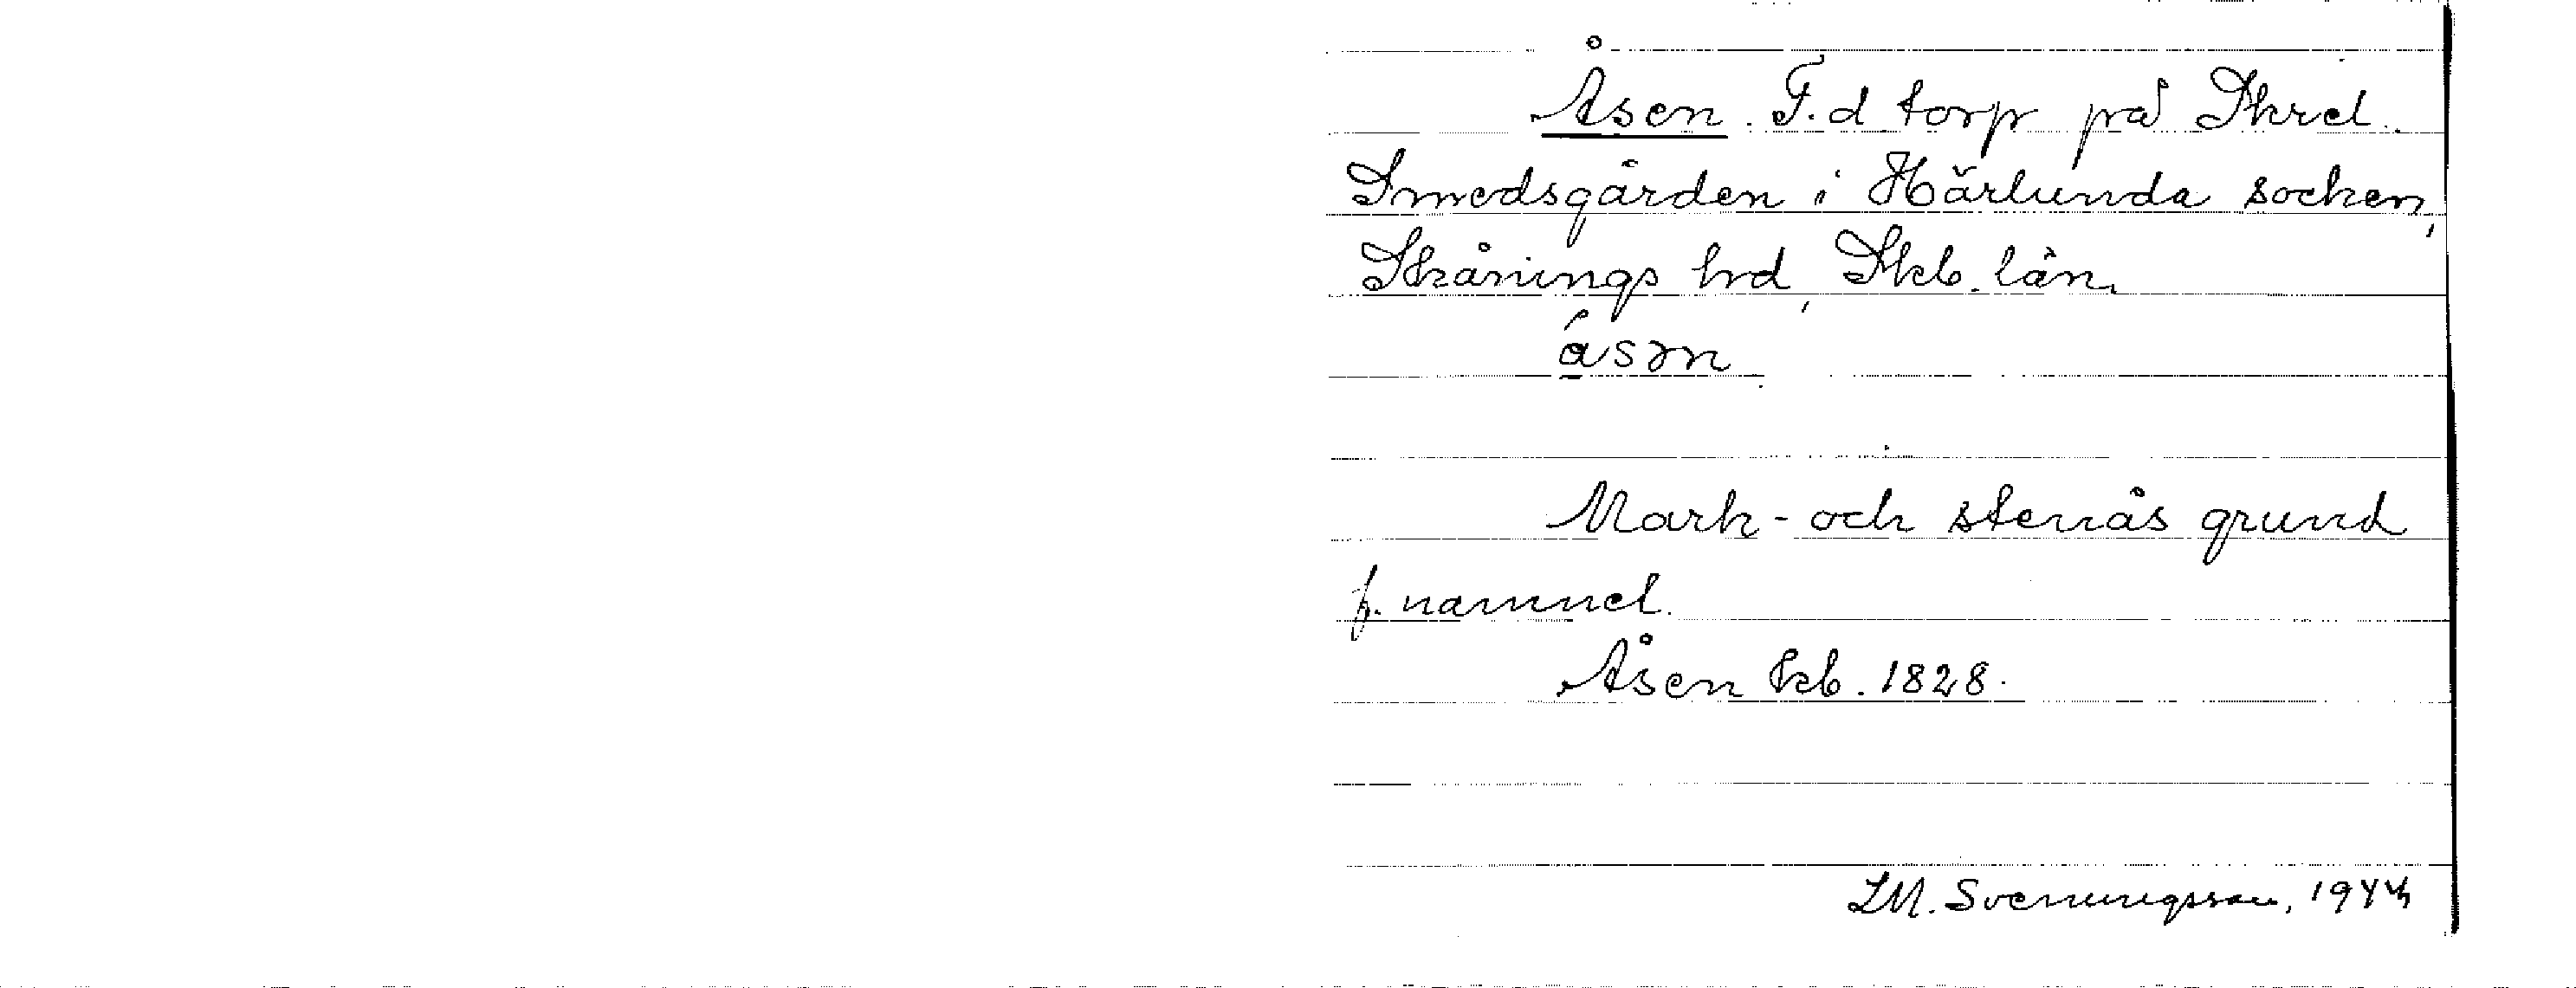 Åsen. F. d torp på Skrel.
Smedsgården i Härlunda socken,
Skånings hd, Skb. län.
åsən
Mark- och stenås grund
f. namnet.
Åsen kb. 1828.
LM. Svenungsson, 1944